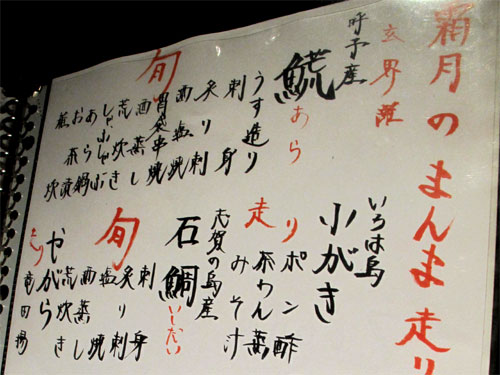 霜月のまんま走り
玄界灘
呼子産
𩺊
あら
旬
うす造り
刺身
炙り刺
酒塩焼
胃袋串焼
酒蒸し
荒炊き
しゃぶしゃぶ
あら鍋
お茶漬
雑炊
いろは島
小がき
走り
ポン酢
茶わん蒸
みそ汁
志賀の島産
石鯛
いしだい
旬
刺身
炙り刺
塩焼
酒蒸し
荒炊き
やがら
走り
竜田揚